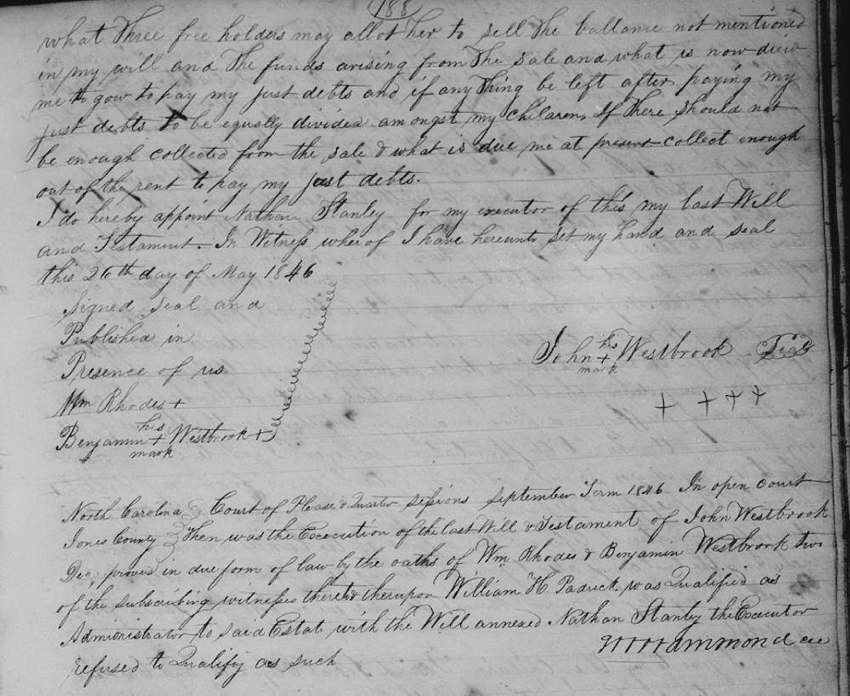 188
what Three free holders may allot her to sell the ballance not mentioned
in my will and The funds arising from The sale and what is now due
me to gow to pay my just debts and if any Thing be left after paying my
just debts to be equally divided amongst my children. If There should not
be enough collected from the sale & what is due me at present collect enough
out of the rent to pay my just debts.
I do hereby appoint Nathan Stanley for my executor of this my last Will
and Testament. In Witness wherof I have hereunto set my hand and seal
this 26th day of May 1846
Signed seal and
Published in
Presence of us
John his + mark Westbrook Seal
Wm Rhodes +
+ + + +
Benjamin his + mark Westbrook +
North Carolina Court of Pleas & Quarter sessions September Term 1846 In open court
Jones County Then was the Execution of the last Will & Testament of John Westbrook
Dec. proved in due form of law by the oaths of Wm Rhodes & Benjamin Westbrook two
of the subscribing witnesses thereto & therupon William H. Padrick was Qualified as
Administrator to said Estate with the Will annexed Nathan Stanly the Executor
refused to Qualify as such
Hammond